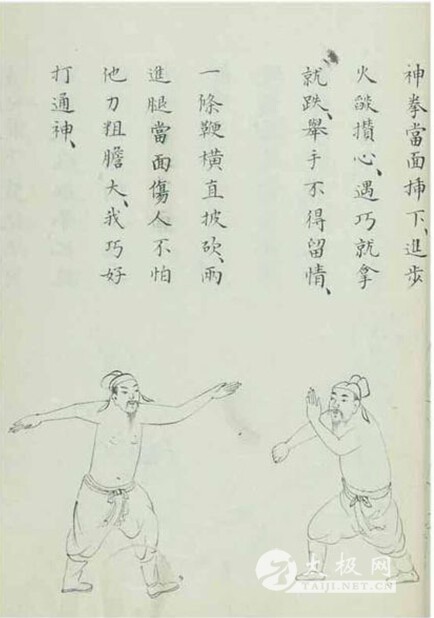 神拳當面挿下、進步
火燄攢心、遇巧就拿
就跌、舉手不得留情、
一條鞭橫直披砍、兩
進腿當面傷人不怕
他力粗膽大、我巧好
打通神、
太极网
TAIJI.NET.CN